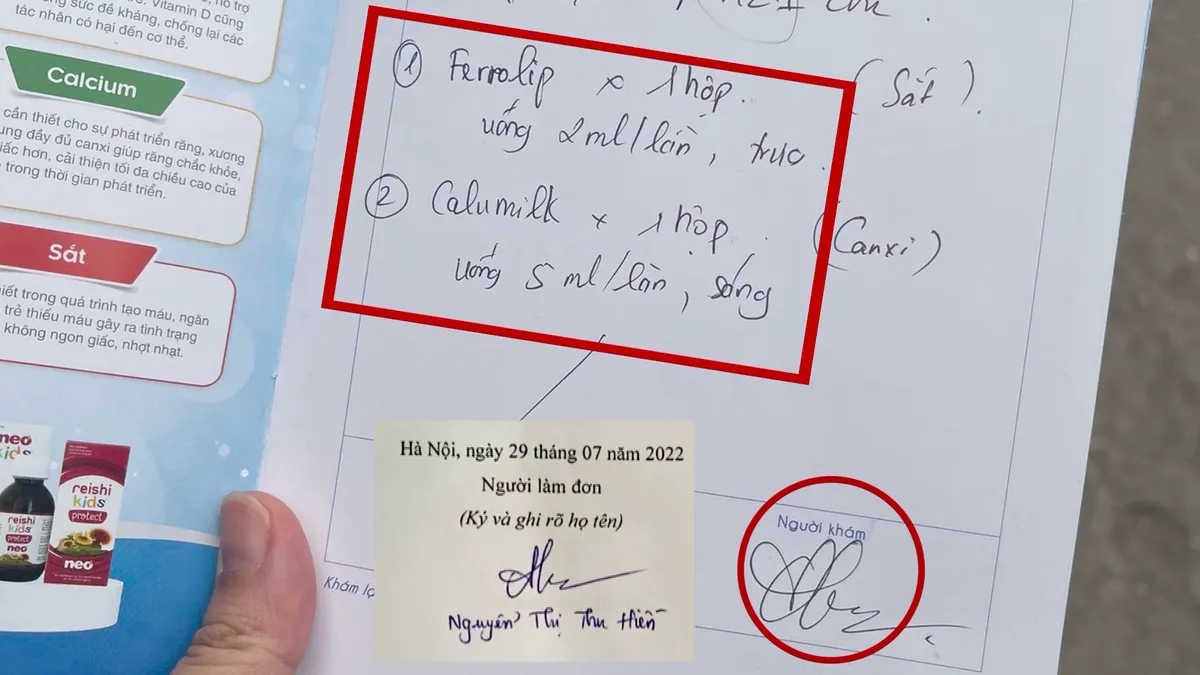 hỗ trợ
sức đề kháng, chống lại các
Vitamin D cũng
tác nhân có hại đến cơ thể.
Calcium
cần thiết cho sự phát triển răng, xương
đầy đủ canxi giúp răng chắc khỏe,
giấc hơn, cải thiện tối đa chiều cao của
trong thời gian phát triển.
Sắt
trong quá trình tạo máu, ngăn
trẻ thiếu máu gây ra tình trạng
không ngon giấc, nhợt nhạt.
neo
kids
reishi
kids
protect
neo
reishi
kids
protect
neo
1 Ferrolip x 1 hộp. (Sắt).
uống 2ml/lần, trưa.
2 Calumilk x 1 hộp. (Canxi)
uống 5 ml/lần, sáng
Hà Nội, ngày 29 tháng 07 năm 2022
Người làm đơn
(Ký và ghi rõ họ tên)
Nguyễn Thị Thu Hiền
Khám lạ
Người khám